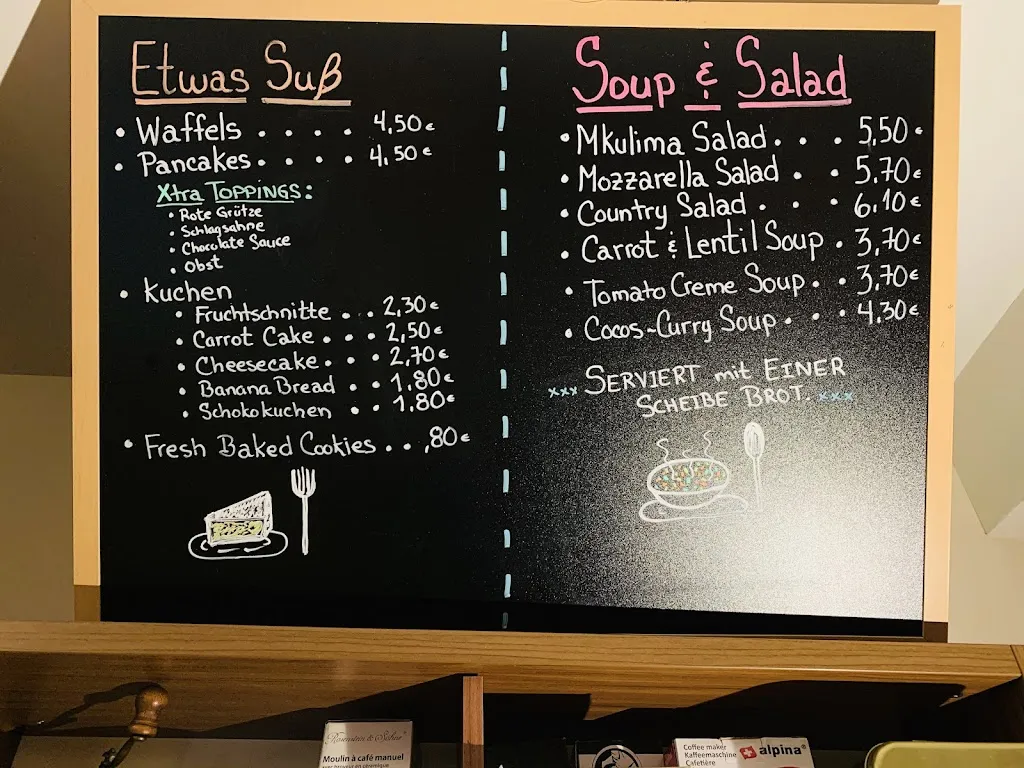 Etwas Suß
• Waffels . . . . 4,50€
• Pancakes . . . . 4.50€
Xtra TOPPINGS:
• Rote Grütze
• Schlagsahne
• Chocolate Sauce
• Obst
• Kuchen
• Fruchtschnitte . . 2,30€
• Carrot Cake . . . 2,50€
• Cheesecake . . . 2,70€
• Banana Bread . . 1.80€
• Schokokuchen . . 1.80€
• Fresh Baked Cookies . . ,80€
Soup & Salad
• Mkulima Salad . . . 5,50€
• Mozzarella Salad . . 5.70€
• Country Salad . . . 6,10€
• Carrot & Lentil Soup . 3,70€
• Tomato Creme Soup . . 3,70€
• Cocos-Curry Soup . . . 4.30€
xxx SERVIERT mit EINER
SCHEIBE BROT. xxx
Moulin à café manuel
Coffee maker
Kaffeemaschine
Cafetière
alpina®